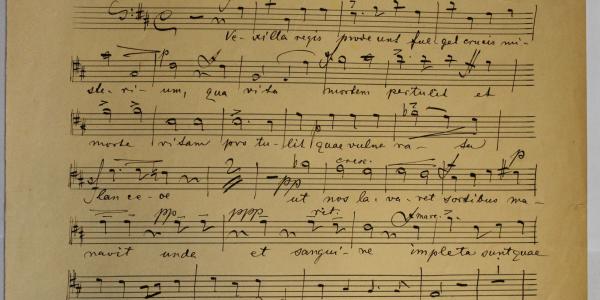 Ve-xilla regis prodeunt fulget crucis mi-
p
ste-ri-um, qua vita mortem pertulit et
morte vitam pro tu-lit quae vulne ra-
cresc. p
pp
lanceae ut nos la-va-ret sordibus ma-
ppp pppp rit. marc.
navit unda et sangui-ne impleta sunt quae